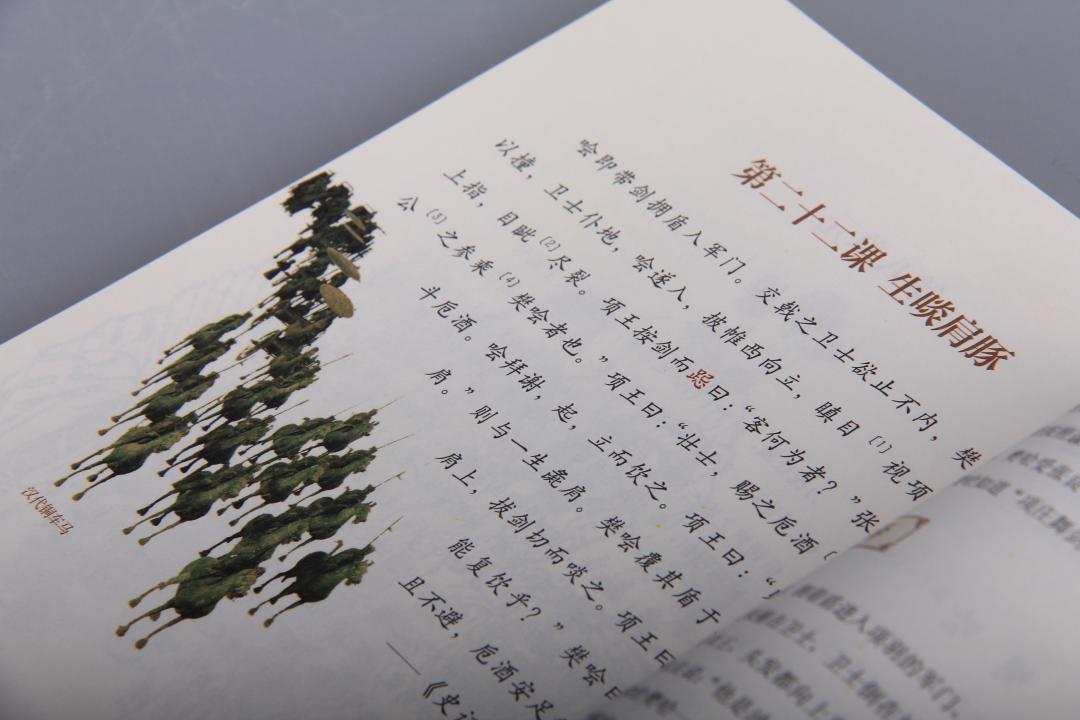 第二十二课 生啖肩豚
哙即带剑拥盾入军门。交戟之卫士欲止不内，樊
以撞，卫士仆地，哙遂入，披帷西向立，瞋目(1)视项
上指，目眦(2)尽裂。项王按剑而跽曰：“客何为者？”张
公(3)之参乘(4)樊哙者也。”项王曰：“壮士，赐之卮酒
斗卮酒。哙拜谢，起，立而饮之。项王曰：“
肩。”则与一生彘肩。樊哙覆其盾于
肩上，拔剑切而啖之。项王曰
能复饮乎？”樊哙曰
且不避，卮酒安足
——《史记
汉代铜车马
进入项羽的军门。
卫士，卫士倒
头发都向上